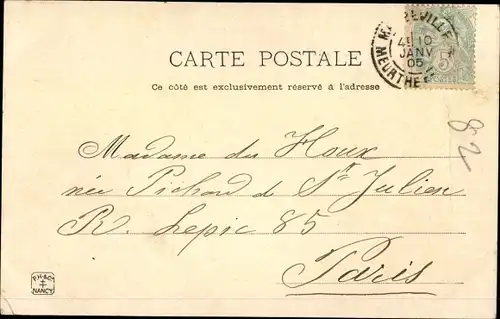 CARTE POSTALE
Ce côté est exclusivement réservé à l'adresse
4E 10
JANV
05
5
82
Madame du Houx
née Pichard de St Julien
R. Lepic 85
Paris
P.H. & Co
NANCY